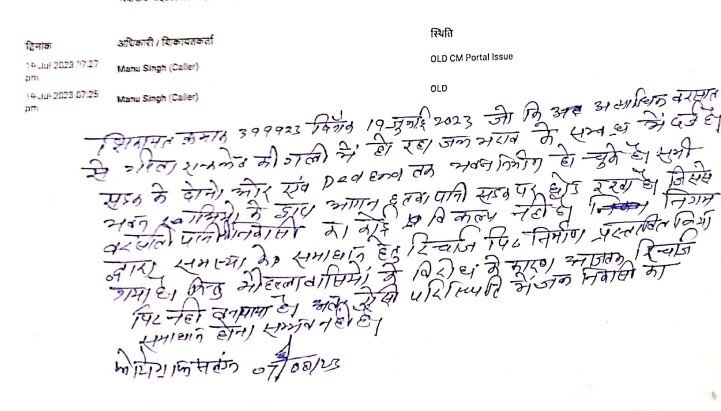 दिनांक अधिकारी / शिकायतकर्ता स्थिति
19-Jul-2023 07:27 pm Manu Singh (Caller) OLD CM Portal Issue
19-Jul-2023 07:25 pm Manu Singh (Caller) OLD
शिकायत क्रमांक 399923 दिनाँक 19-जुलाई 2023 जो कि अत्याधिक बरसात
से गीता की गली में हो रहा जल भराव के सम्बन्ध में दर्ज है।
सड़क के दोनो ओर एवं Dead end तक भवन निर्माण हो चुके है। सभी
भवन स्वामियो के द्वारा अपना पानी सड़क पर छोड़ रखा है। जिससे
बरसाती पानी निकासी का कोई विकल्प नही है। निगम
द्वारा समस्या के समाधान हेतु रिचार्ज पिट निर्माण प्रस्तावित किया
गया है। किन्तु मौहल्लावासियों के विरोध के कारण आजतक रिचार्ज
पिट नही बन पाया है। अतः ऐसी परिस्थिति में जल निकासी का
समाधान होना सम्भव नही है।
07/08/23